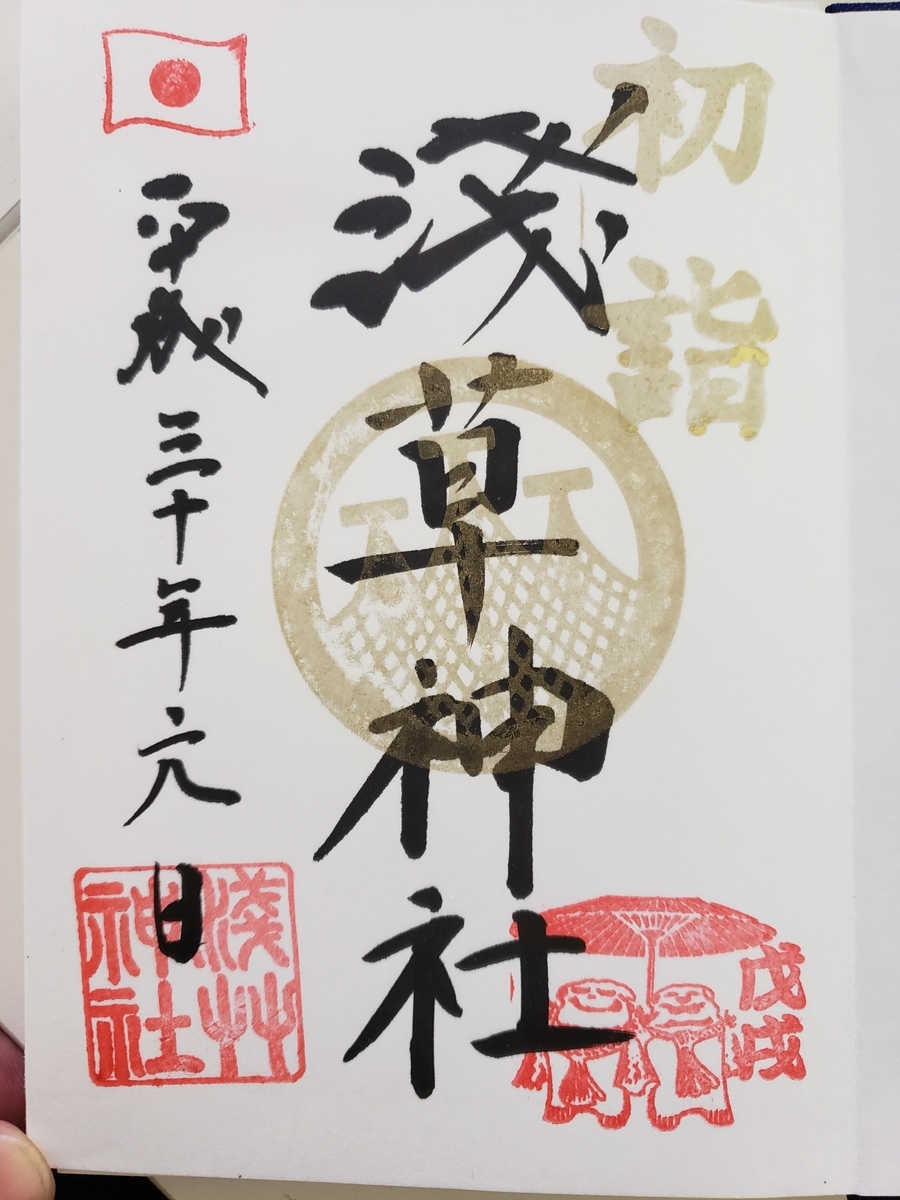 初詣
淺草神社
戊戌
平成三十年元日
淺艸神社